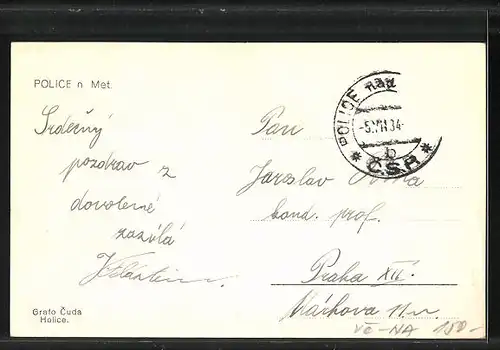 POLICE n Met.
Srdečný
pozdrav z
dovolené
zasílá
Grafo Čuda
Holice.
POLICE nad
-5.VII.34-
b
* Č.S.P. *
Pan
Jaroslav
kand. prof.
Praha XII.
Máchova 11.
VČ-NA 150-